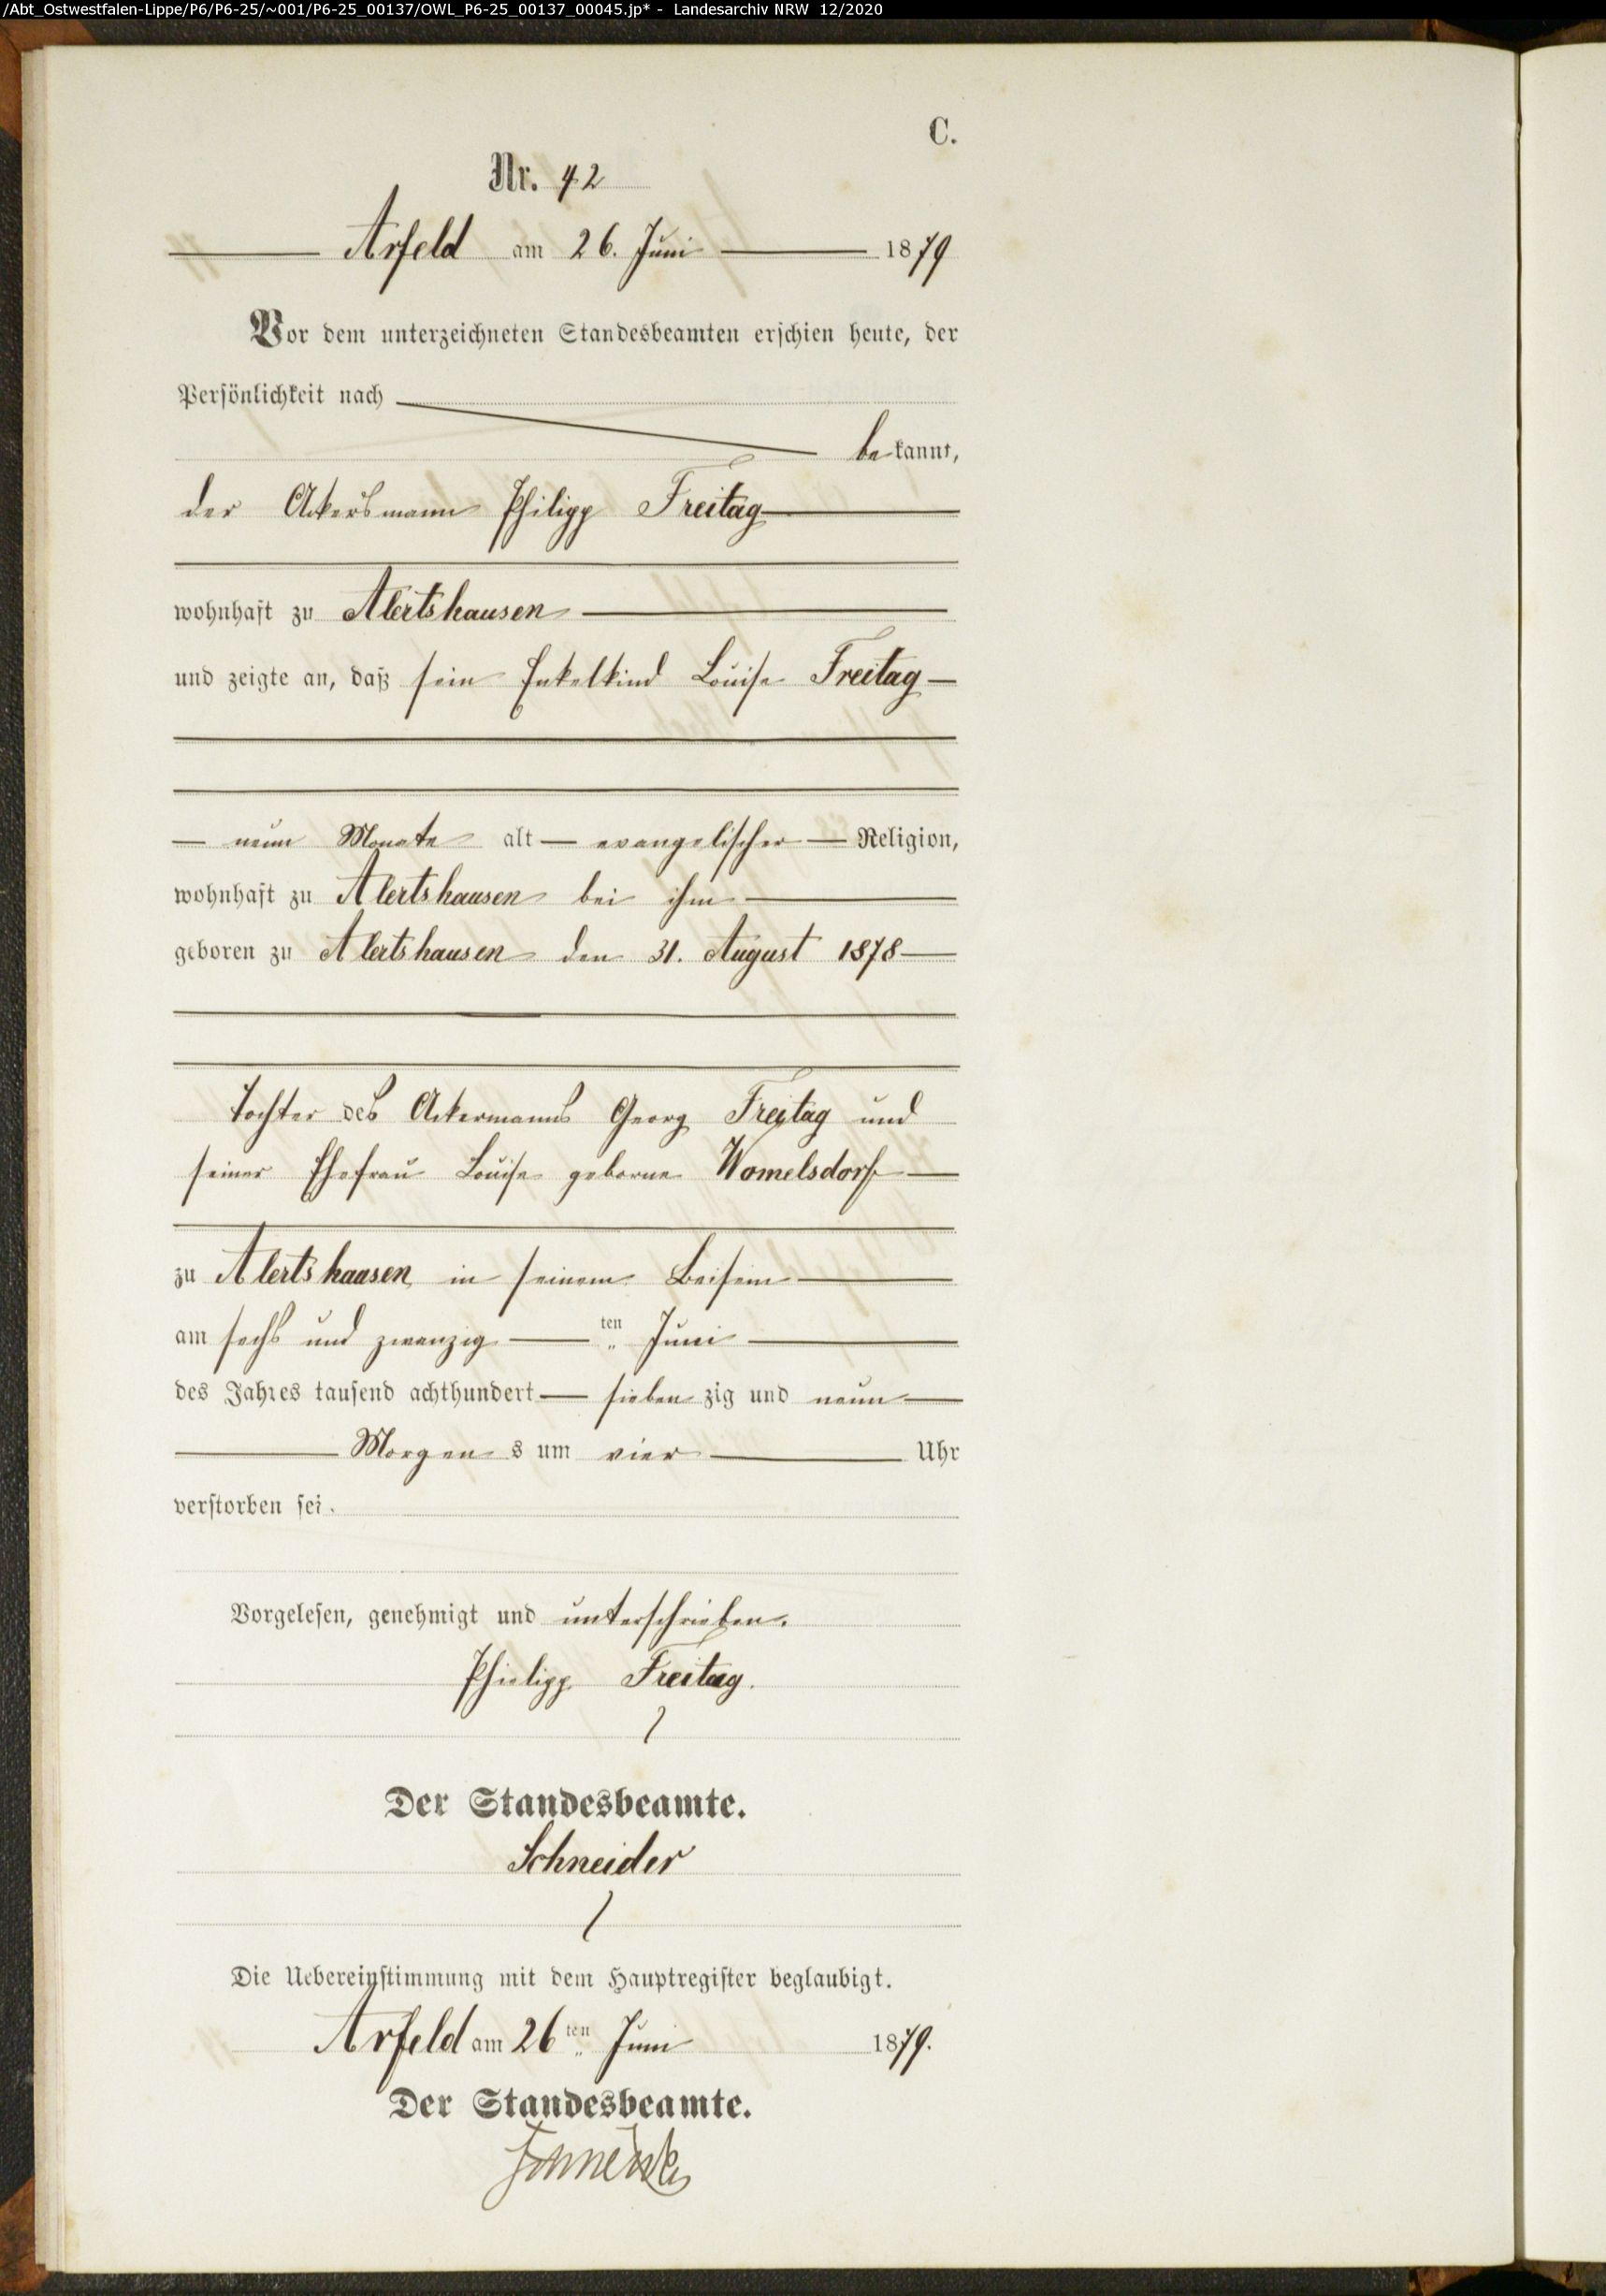 /Abt_Ostwestfalen-Lippe/P6/P6-25/~001/P6-25_00137/OWL_P6-25_00137_00045.jp* - Landesarchiv NRW 12/2020
C.
Nr. 42
Arfeld am 26. Juni 1879
Vor dem unterzeichneten Standesbeamten erschien heute, der
Persönlichkeit nach
bekannt,
der Ackersmann Philipp Freitag
wohnhaft zu Alertshausen
und zeigte an, daß sein Enkelkind Louise Freitag
neun Monate alt evangelischer Religion,
wohnhaft zu Alertshausen bei ihm
geboren zu Alertshausen den 31. August 1878
Tochter des Ackermanns Georg Freitag und
seiner Ehefrau Louise geborne Womelsdorf
zu Alertshausen in seinem Beisein
am sechs und zwanzig ten Juni
des Jahres tausend achthundert sieben zig und neun
Morgens um vier Uhr
verstorben sei.
Vorgelesen, genehmigt und unterschrieben.
Philipp Freitag.
Der Standesbeamte.
Schneider
Die Uebereinstimmung mit dem Hauptregister beglaubigt.
Arfeld am 26ten Juni 1879.
Der Standesbeamte.